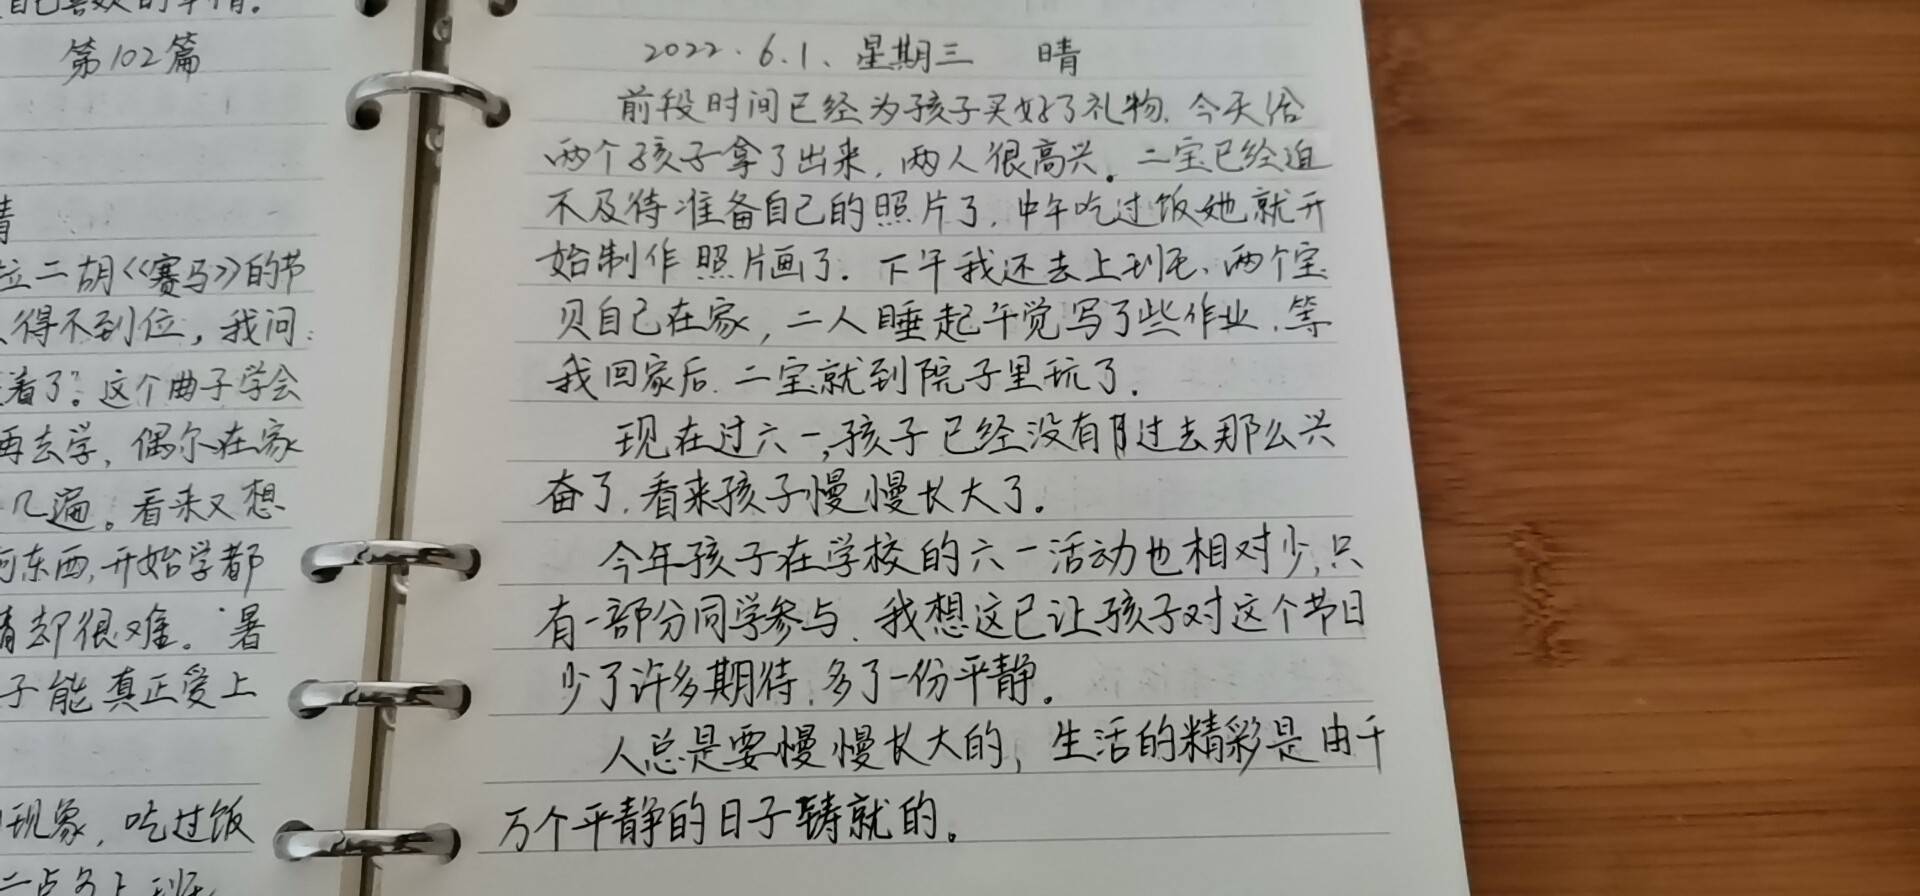 自己喜欢的事情。
第102篇
晴
拉二胡《赛马》的节
得不到位，我问：
着了”。这个曲子学会
再去学，偶尔在家
几遍。看来又想
何东西，开始学都
精却很难。暑
子能真正爱上
现象，吃过饭
2022.6.1、星期三 晴
前段时间已经为孩子买好了礼物，今天给
两个孩子拿了出来，两人很高兴。二宝已经迫
不及待准备自己的照片了，中午吃过饭她就开
始制作照片画了。下午我还去上班，两个宝
贝自己在家，二人睡起午觉写了些作业，等
我回家后，二宝就到院子里玩了。
现在过六一，孩子已经没有过去那么兴
奋了，看来孩子慢慢长大了。
今年孩子在学校的六一活动也相对少，只
有一部分同学参与，我想这已让孩子对这个节日
少了许多期待，多了一份平静。
人总是要慢慢长大的，生活的精彩是由千
万个平静的日子铸就的。